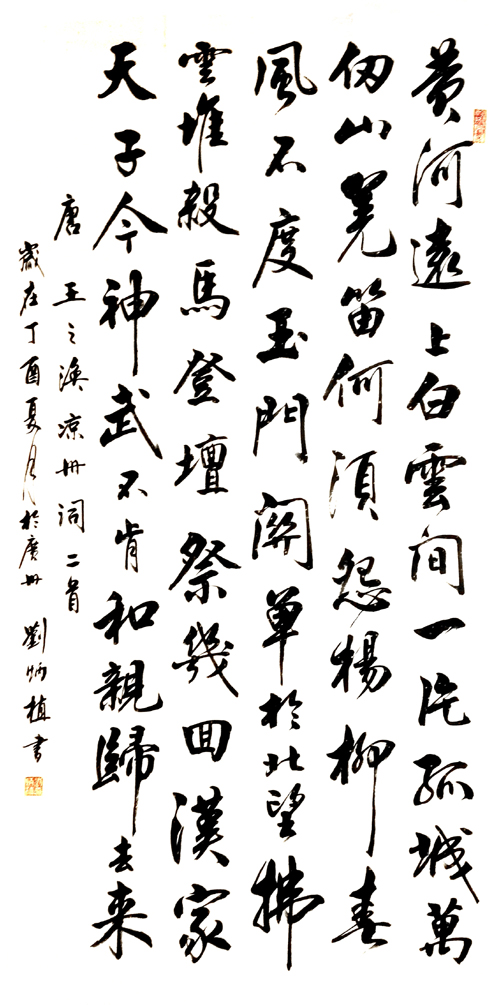 黄河遠上白雲间一片孤城萬
仞山羌笛何須怨楊柳春
風不度玉門關單於北望拂
雲堆殺馬登壇祭幾回漢家
天子今神武不肯和親歸去来
唐 王之渙凉州詞二首
歲在丁酉夏月於廣州 劉炳植書